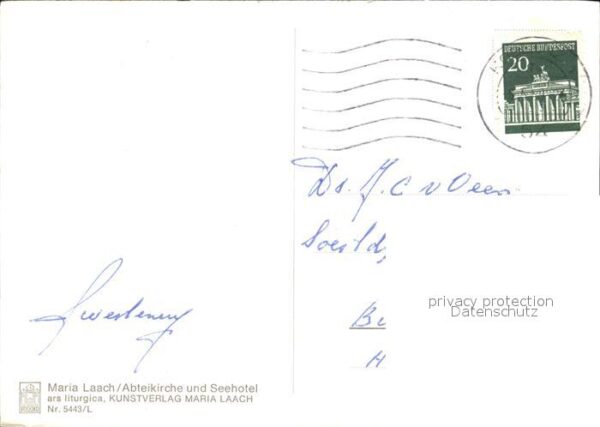 DEUTSCHE BUNDESPOST
20
54
Ds. J. C. v Veen
Bi
H
privacy protection
Datenschutz
Maria Laach/Abteikirche und Seehotel
ars liturgica, KUNSTVERLAG MARIA LAACH
Nr. 5443/L